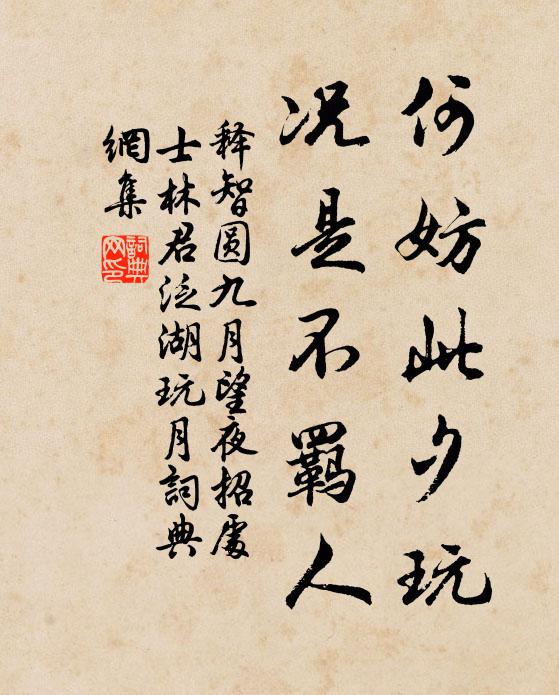 何妨此夕玩
况是不羁人
释智圆九月望夜招處
士林君泛湖玩月詞典
網集
詞典网印